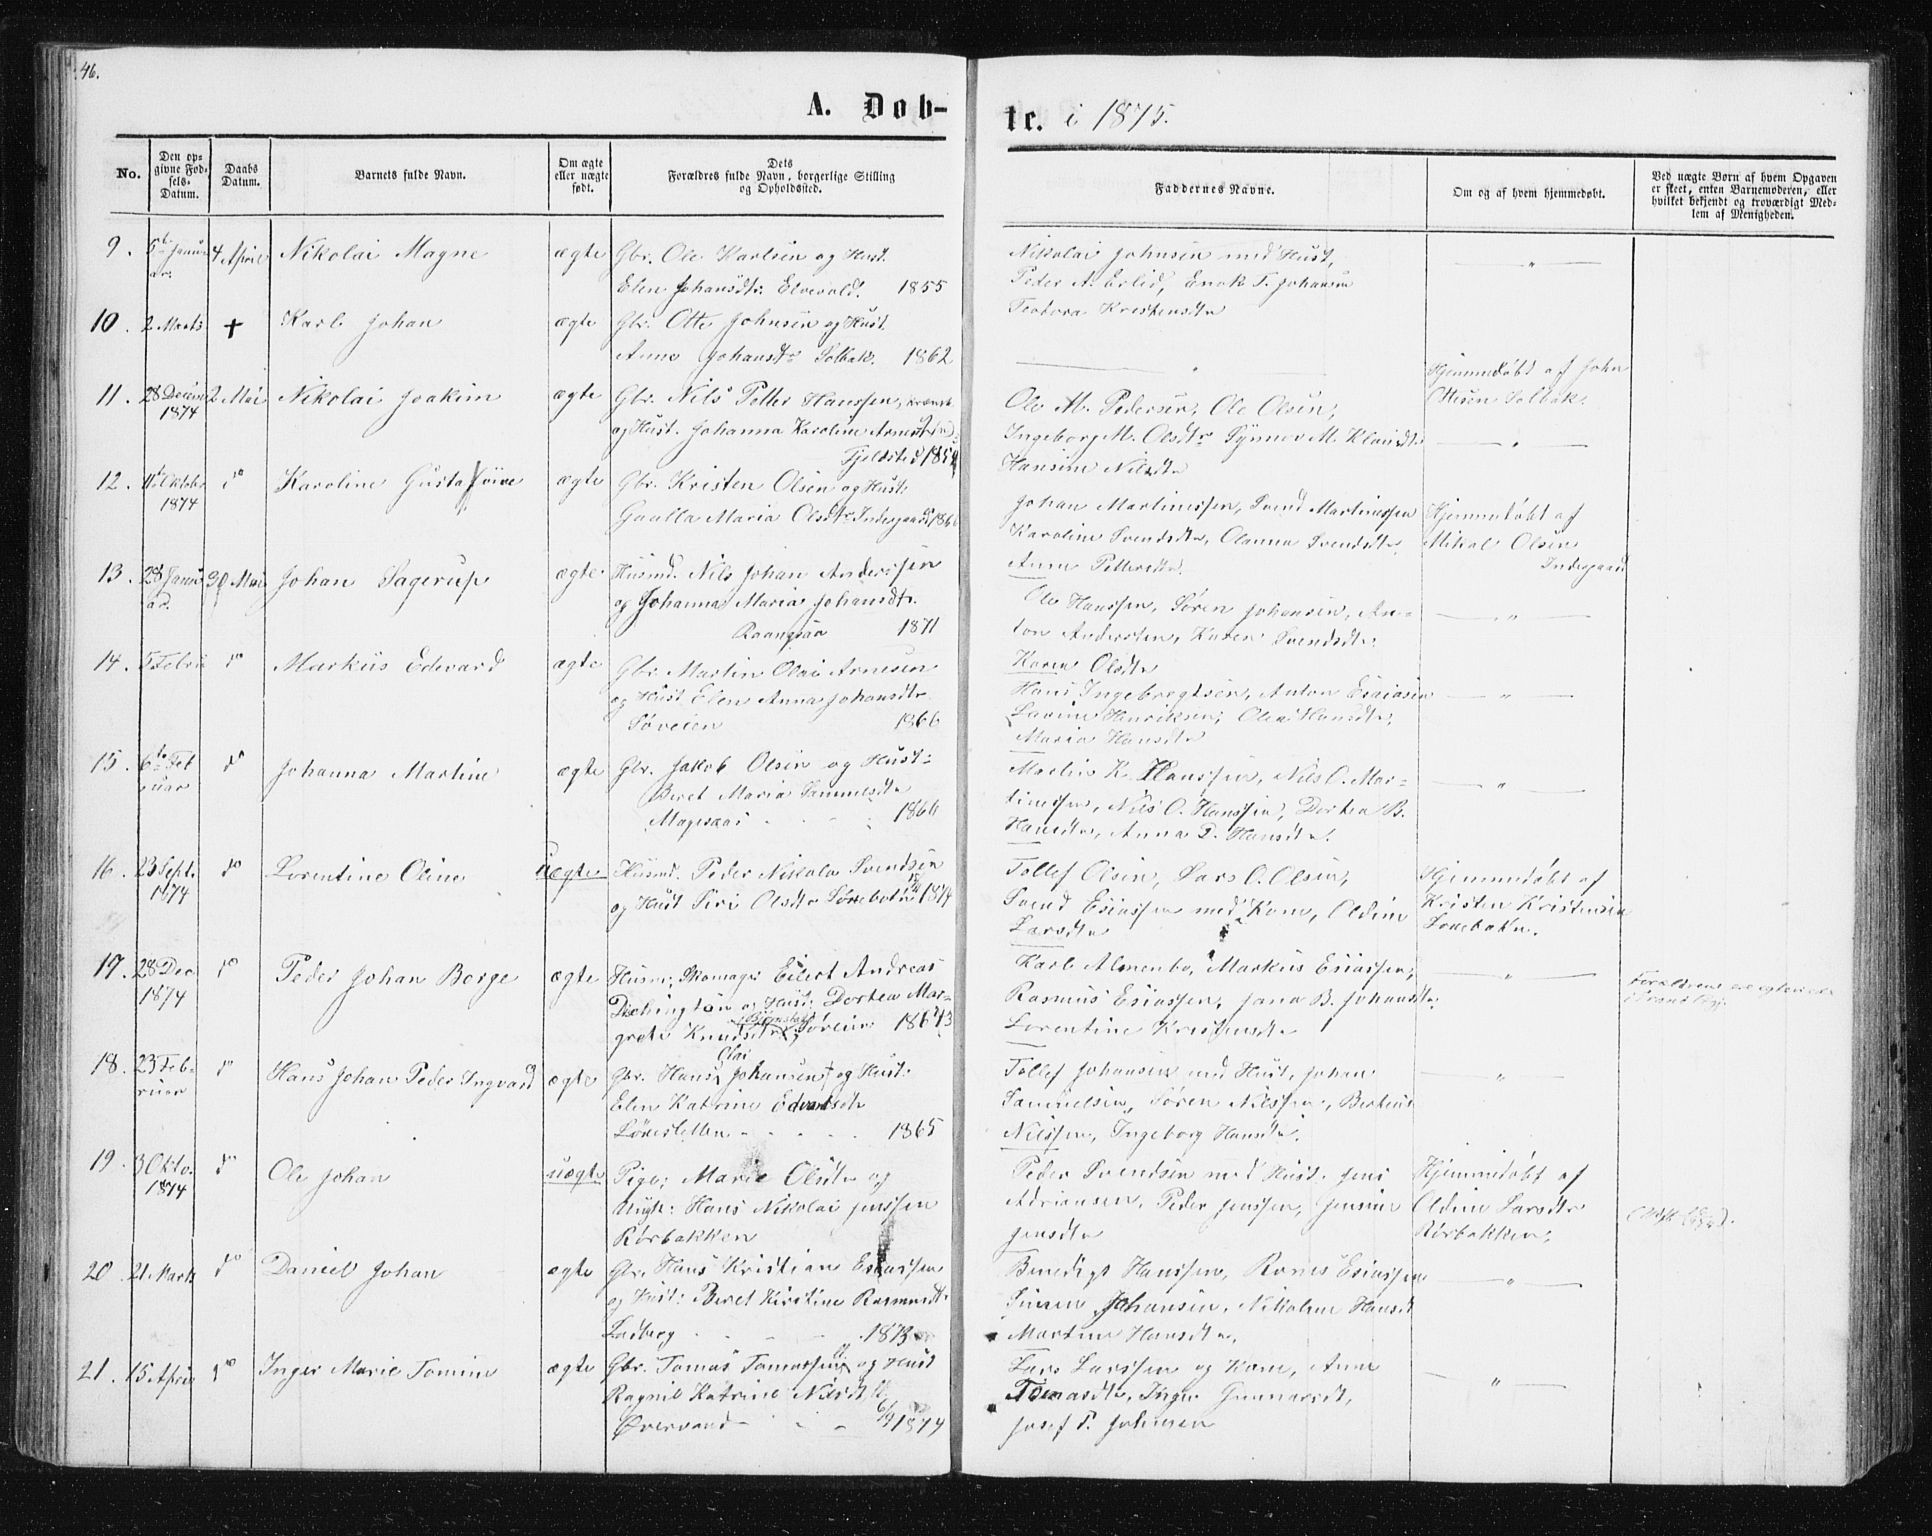 46.
A. Døb-
te. i 1875.
No.
Den op-
givne Fød-
sels-
Datum.
Daabs
Datum.
Barnets fulde Navn.
Om ægte
eller uægte
født.
Dets
Forældres fulde Navn, borgerlige Stilling
og Opholdssted.
Faddernes Navne.
Om og af hvem hjemmedøbt.
Ved uægte Børn af hvem Opgaven
er skeet, enten Barnemoderen, eller
hvilket bekjendt og troværdigt Med-
lem af Menigheden.
9. 5te Janu- 4 April Nikolai Magne ægte Gbr. Ole Karlsen og Hust.
ar. Elen Johansdtr. Elvevold. 1855
Nikolai Johnsen med Hust,
Peder A. Erlid, Enok T. Johansen
Teodora Kristensdtr
10. 2 Marts + Karl Johan ægte Gbr. Otte Johnsen og Hust.
Anne Johansdtr Solbak. 1862
Hjemmedøbt af John
Ottesen Solbak.
11. 28 Decem 2 Mai Nikolai Joakim ægte Gbr. Nils Petter Hanssen,
1874 og Hust. Johanna Karoline Arnesd
Fjeldsted 1854
Ole M. Pedersen, Ole Olsen,
Ingeborg M. Olsdtr Synnøv M. Klausdtr
Hansine Nilsdtr
12. 11te Oktobr do Karoline Gustava ægte Gbr. Kristen Olsen og Hust:
1874 Gunilla Maria Olsdtr. Indregaard 1866
Johan Martinussen, Svend Martinussen
Karoline Svendsdtr, Olanna Svendsdtr
Anne Pettersdtr.
Hjemmedøbt af
Mikal Olsen
Indregaard
13. 28 Janu 30 Mai Johan Sagerup ægte Husmd. Nils Johan Anderssen
ar. og Johanna Maria Johansdtr.
1871
Ole Hanssen, Søren Johansen, An-
ton Anderssen, Karen Svendsdtr.
Karen Olsdtr
14. 5 Febru do Markus Edvard ægte Gbr. Martin Olai Arnesen
og Hust Elen Anna Johansdtr.
Søreien 1866
Hans Ingebregtsen, Anton Esaiasen
Lavine Henriksen, Olea Hansdtr,
Maria Hansdtr
15. 6te Feb do Johanna Martine ægte Gbr. Jakob Olsen og Hust:
ruar Beret Maria Samuelsdtr
1866
Martin K. Hanssen, Nils O. Mar-
tinussen, Nils O. Hanssen, Dortea B.
Hansdtr, Anna D. Hansdtr.
16. 23 Sept. do Lorentine Oline uægte Husmd. Peder Nikolai Svendsen
1874 og Hust Siri Olsdtr Sørebotn 1874
Tollef Olsen, Lars O. Olsen,
Svend Esiassen med Kone, Oldine
Larsdtr
Hjemmedøbt af
Kristen Kristensen
Sørebotn.
17. 28 Dec. do Peder Johan Borge ægte Husm, Skomager Eilert Andreas
1874 og Hust: Dortea Mar-
grete Knudsdtr, Sørein
Karl Almenbo, Markus Esiassen,
Rasmus Esiassen, Jana B. Johansdtr.
Lorentine Kristensdtr
18. 23 Feb- do Hans Johan Peder Ingvard ægte Gbr. Hans Olai Johansen og Hust:
ruar Elen Katrine Edvardsdtr
1865
Tollef Johansen med Hust, Johan
Samuelsen, Søren Nilssen, Berteus
Nilssen, Ingeborg Hansdtr.
19. 3 Okto. do Ole Johan uægte Pige: Marie Olsdtr og
1874 Ungk: Hans Nikolai Jenssen
Rørbakken
Peder Svendsen med Hust. Jens
Adriansen, Peder Jenssen, Jensine
Jensdtr
Hjemmedøbt af
Oldine Larsdtr
Rørbakken,
20. 21 Marts do Daniel Johan ægte Gbr. Hans Kristian Esiassen
og Hust: Beret Kirstine Rasmusdtr
1873
Benedigt Hanssen, Rones Esiassen
Simen Johansen, Nikoline Hansdt
Martine Hansdtr.
21. 15 April do Inger Marie Tomine ægte Gbr. Tomas Tomassen og Hust
Ragnil Katrine Nilsdtr
Øvervand 6/9 1874
Lars Larssen og Kone, Anne
Tomasdtr, Inger Gunnarsdt,
Josef P. Johnsen